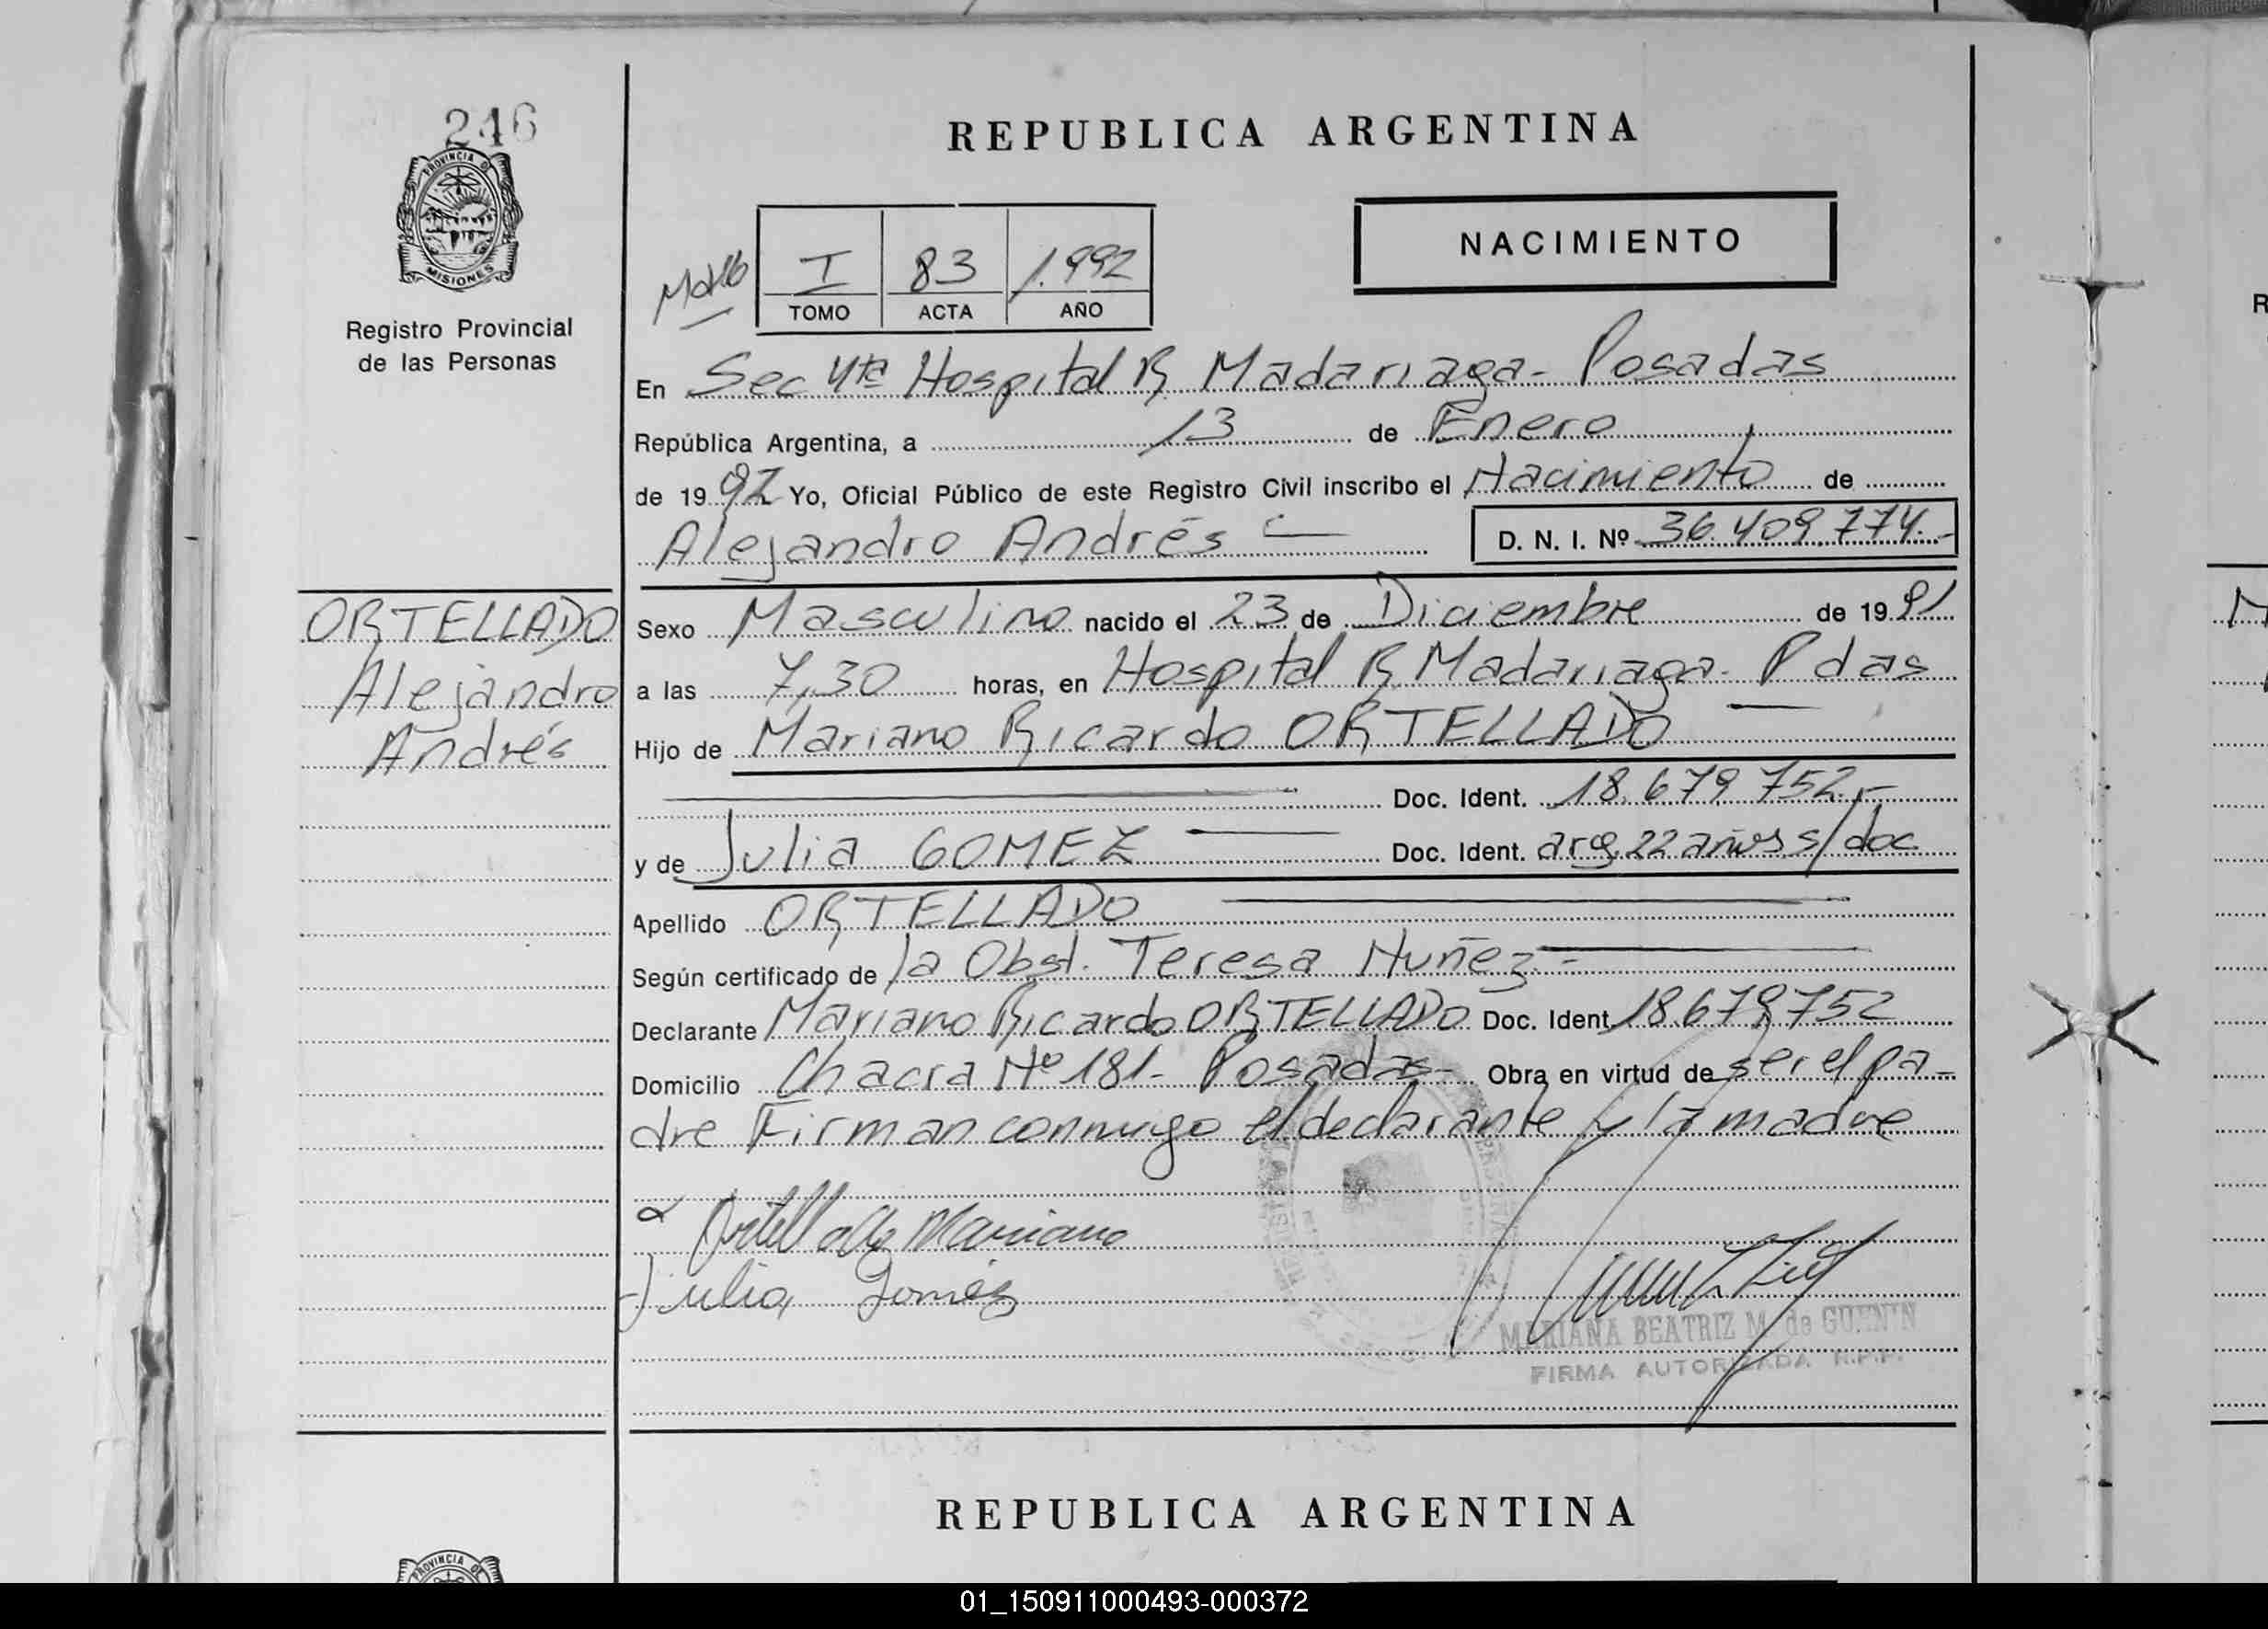 246
PROVINCIA DE
MISIONES
Registro Provincial
de las Personas
ORTELLADO
Alejandro
Andrés
REPUBLICA ARGENTINA
NACIMIENTO
I 83 1.992
TOMO ACTA AÑO
En Sec 4ta Hospital R Madariaga - Posadas
República Argentina, a 13 de Enero
de 1992 Yo, Oficial Público de este Registro Civil inscribo el Nacimiento de
Alejandro Andrés D. N. I. Nº 36.409.774.-
Sexo Masculino nacido el 23 de Diciembre de 1991
a las 7,30 horas, en Hospital R Madariaga - Pdas
Hijo de Mariano Ricardo ORTELLADO
Doc. Ident. 18.679 752.-
y de Julia GOMEZ Doc. Ident. arg. 22 años s/doc
Apellido ORTELLADO
Según certificado de la Obst. Teresa Nuñez -
Declarante Mariano Ricardo ORTELLADO Doc. Ident. 18.679752
Domicilio Chacra Nº 181 - Posadas - Obra en virtud de ser el pa-
dre Firman conmigo el declarante y la madre
Ortellado Mariano
Julia Gomez
MARIANA BEATRIZ M. de GUENIN
FIRMA AUTORIZADA R.P.P.
REPUBLICA ARGENTINA
PROVINCIA DE
01_150911000493-000372